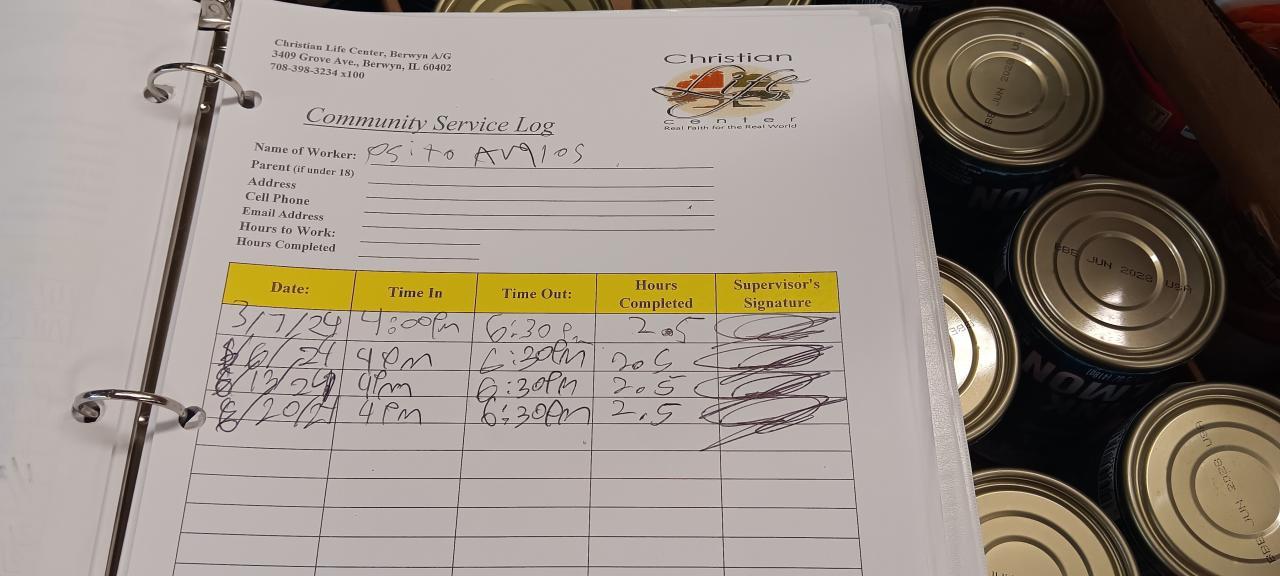 Christian Life Center, Berwyn A/G
3409 Grove Ave., Berwyn, IL 60402
708-398-3234 x100
Christian
Life
center
Real Faith for the Real World
Community Service Log
Name of Worker: Osito Avalos
Parent (if under 18)
Address
Cell Phone
Email Address
Hours to Work:
Hours Completed
Date: Time In Time Out: Hours Completed Supervisor's Signature
3/7/24 4:00Pm 6:30Pm 2.5
8/6/24 4Pm 6:30Pm 2.5
8/13/24 4Pm 6:30PM 2.5
8/20/24 4PM 6:30Pm 2.5
BBE JUN 2028 USA
BBE JUN 2028 USA
BBE
BBE JUN 2028 USA